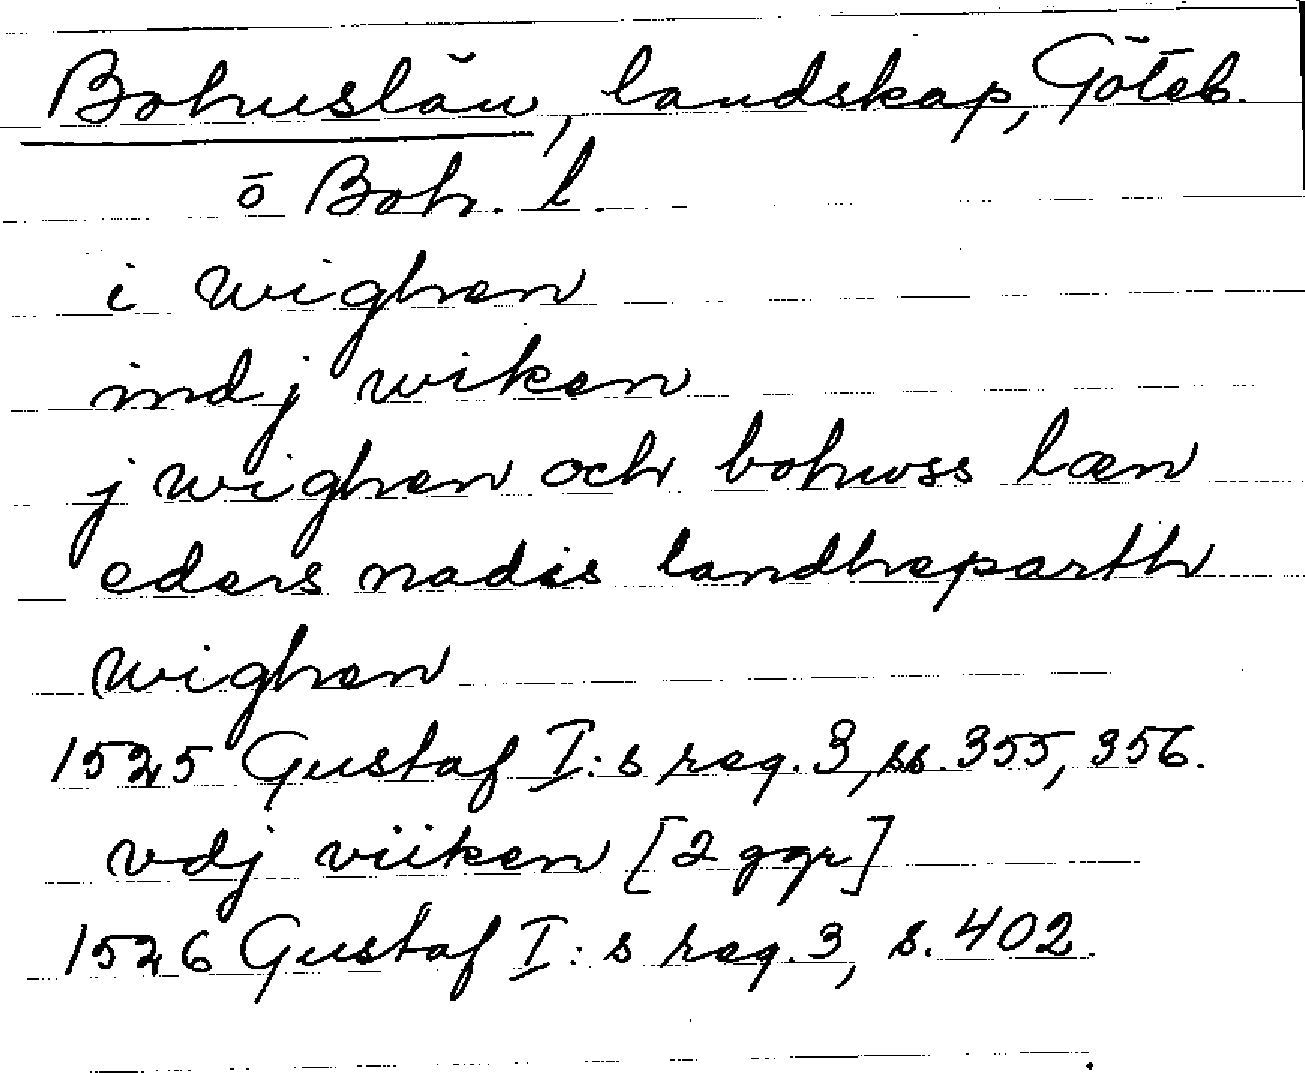 Bohuslän, landskap, Göteb.
o Boh. l.
i wighen
ind j wiken
j wighen och bohwss læn
eders nadis landheparth
wighen
1525 Gustaf I:s reg. 3, ss. 355, 356.
vdj viiken [2 ggr]
1526 Gustaf I:s reg. 3, s. 402.